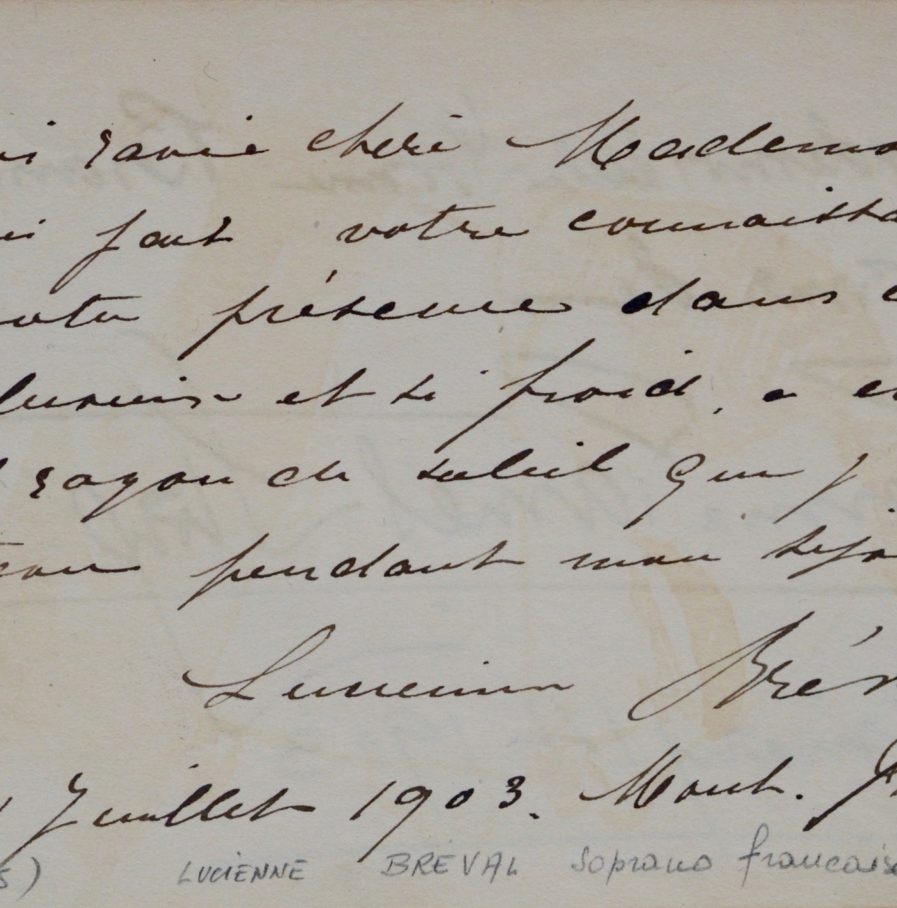 is ravie chère Mademo
ai fait votre connaissa
votre présence dans c
pluvieux et si froid, a é
rayon de soleil que j
pendant mon séjo
Lucienne Brév
Juillet 1903. Mont.
s) LUCIENNE BRÉVAL Soprano francais